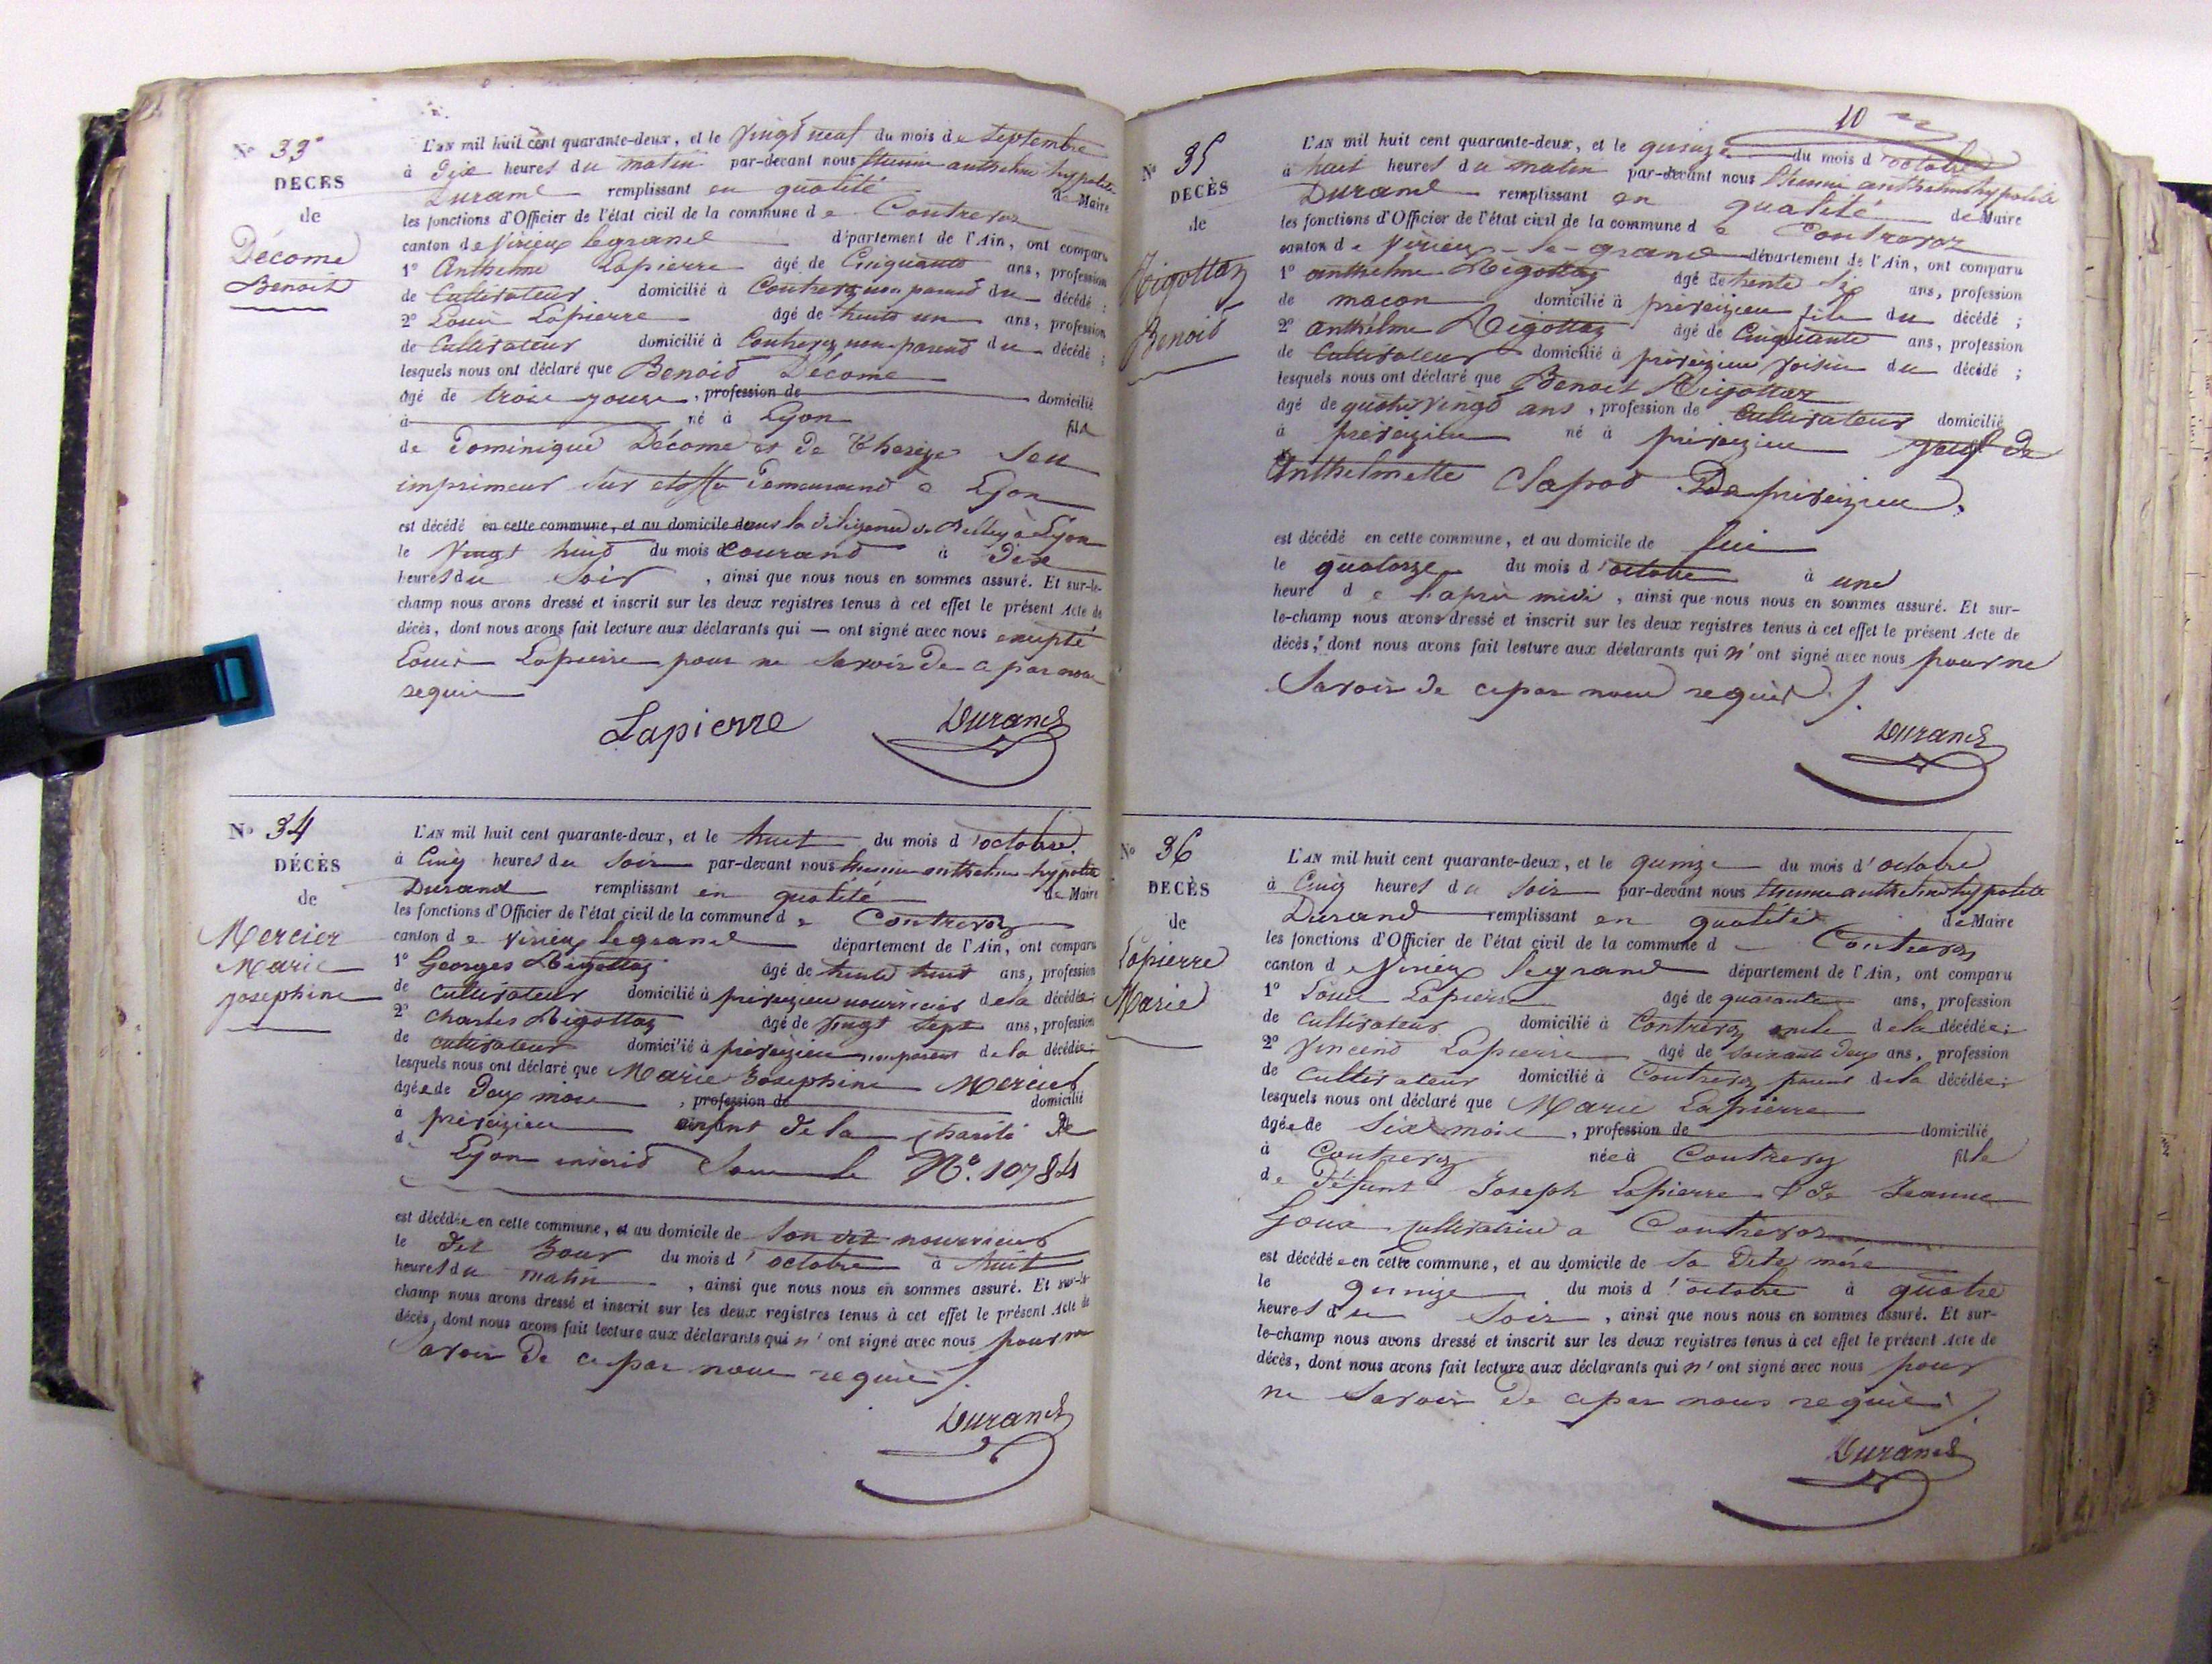 N° 33
DÉCÈS
de
Décome
Benoit
L'AN mil huit cent quarante-deux, et le Vingt neuf du mois de Septembre
à Dix heures du matin par-devant nous Etienne anthelme hyppolite
Durand remplissant en qualité de Maire
les fonctions d'Officier de l'état civil de la commune de Contrevoz
canton de Virieux legrand département de l'Ain, ont comparu
1° Anthelme Lapierre âgé de Cinquante ans, profession
de Cultivateur domicilié à Contrevoz non parent du décédé ;
2° Louis Lapierre âgé de trente un ans, profession
de Cultivateur domicilié à Contrevoz non parent du décédé ;
lesquels nous ont déclaré que Benoit Décome
âgé de trois jours, profession de domicilié
à né à Lyon fils
de Dominique Décome et de Thereze Seu
imprimeur sur etoffe Demeurant a Lyon
est décédé en cette commune, et au domicile de dans la diligence de Belley à Lyon
le Vingt huit du mois d courant à Dix
heures du Soir, ainsi que nous nous en sommes assuré. Et sur-le-
champ nous avons dressé et inscrit sur les deux registres tenus à cet effet le présent Acte de
décès, dont nous avons fait lecture aux déclarants qui — ont signé avec nous excepté
Louis Lapierre pour ne Savoir de ce par nous
requis
Lapierre Durand
N° 34
DÉCÈS
de
Mercier
Marie
josephine
L'AN mil huit cent quarante-deux, et le huit du mois d'octobre
à Cinq heures du Soir par-devant nous Etienne anthelme hypolite
Durand remplissant en qualité de Maire
les fonctions d'Officier de l'état civil de la commune de Contrevoz
canton de Virieux legrand département de l'Ain, ont comparu
1° Georges Rigottaz âgé de trente huit ans, profession
de Cultivateur domicilié à préveizieu nourricier de la décédée ;
2° Charles Rigottaz âgé de Vingt Sept ans, profession
de cultivateur domicilié à préveizieu non parent de la décédée ;
lesquels nous ont déclaré que Marie Josephine Mercier
âgée de Deux mois, profession de domicilié
à préveizieu enfant de la charité de
d Lyon inscrit Sous le N°. 10784
est décédée en cette commune, et au domicile de Son dit nourricier
le dit Jour du mois d'octobre à huit
heures du matin, ainsi que nous nous en sommes assuré. Et sur-le-
champ nous avons dressé et inscrit sur les deux registres tenus à cet effet le présent Acte de
décès, dont nous avons fait lecture aux déclarants qui n'ont signé avec nous pour ne
Savoir De ce par nous requis /.
Durand
10
N° 35
DÉCÈS
de
Rigottaz
Benoit
L'AN mil huit cent quarante-deux, et le quinze du mois d'octobre
à huit heures du matin par-devant nous Etienne anthelme hypolite
Durand remplissant en qualité de Maire
les fonctions d'Officier de l'état civil de la commune de Contrevoz
canton de Virieux-le-grand département de l'Ain, ont comparu
1° anthelme Rigottaz âgé de trente Six ans, profession
de macon domicilié à préveizieu fils du décédé ;
2° anthélme Rigottaz âgé de Cinquante ans, profession
de Cultivateur domicilié à préveizieu voisin du décédé ;
lesquels nous ont déclaré que Benoit Rigottaz
âgé de quatre Vingt ans, profession de Cultivateur domicilié
à préveizieu né à préveizieu veuf de
Anthelmette Clapot De préveizieu
est décédé en cette commune, et au domicile de lui
le quatorze du mois d'octobre à une
heure de l'après midi, ainsi que nous nous en sommes assuré. Et sur-
le-champ nous avons dressé et inscrit sur les deux registres tenus à cet effet le présent Acte de
décès, dont nous avons fait lecture aux déclarants qui n'ont signé avec nous pour ne
Savoir de ce par nous requis /.
Durand
N° 36
DÉCÈS
de
Lapierre
Marie
L'AN mil huit cent quarante-deux, et le quinze du mois d'octobre
à Cinq heures du Soir par-devant nous Etienne anthelme hypolite
Durand remplissant en qualité de Maire
les fonctions d'Officier de l'état civil de la commune d Contrevoz
canton de Virieux legrand département de l'Ain, ont comparu
1° Louis Lapierre âgé de quarante ans, profession
de Cultivateur domicilié à Contrevoz oncle de la décédée ;
2° Vincent Lapierre âgé de soixante deux ans, profession
de Cultivateur domicilié à Contrevoz parent de la décédée ;
lesquels nous ont déclaré que Marie Lapierre
âgée de Six mois, profession de domicilié
à Contrevoz née à Contrevoz fille
de Défunt Joseph Lapierre & de Jeanne
Goux cultivatrice a Contrevoz
est décédée en cette commune, et au domicile de sa Dite mére
le quinze du mois d'octobre à quatre
heures du Soir, ainsi que nous nous en sommes assuré. Et sur-
le-champ nous avons dressé et inscrit sur les deux registres tenus à cet effet le présent Acte de
décès, dont nous avons fait lecture aux déclarants qui n'ont signé avec nous pour
ne Savoir De ce par nous requis /.
Durand